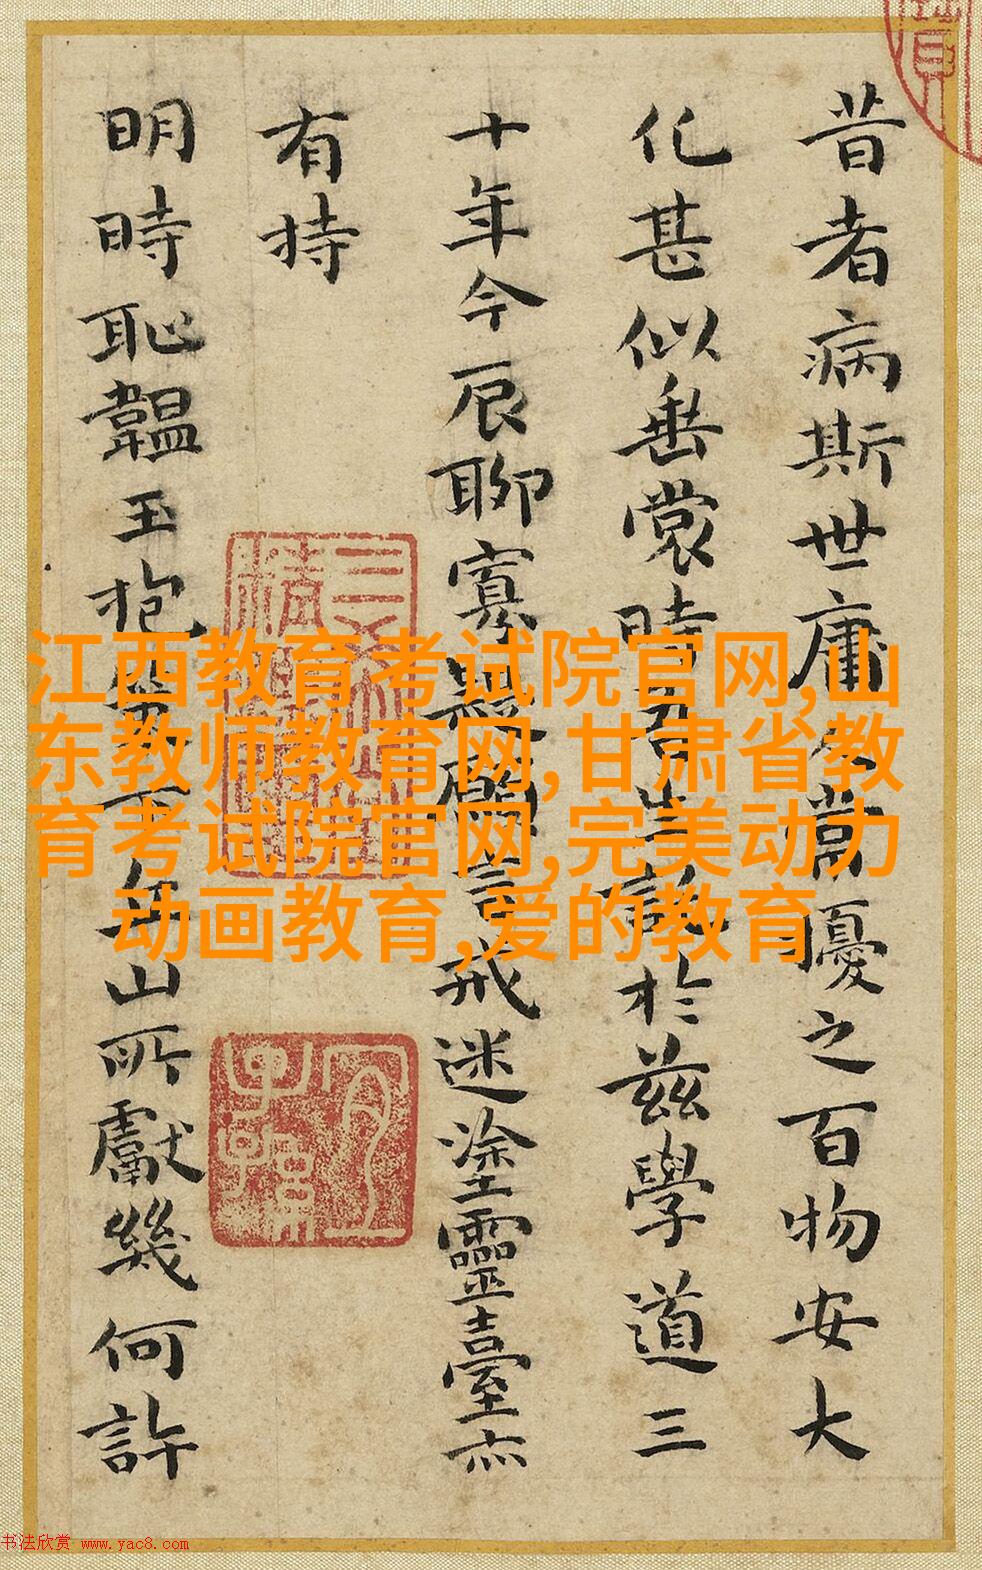 昔者病斯世庸人常擾之百物安大
化甚似垂裳時吾生託於茲學道三
十年今辰聊寡過願言戒迷塗靈臺亦
有持
明時恥韞玉抱
山所獻幾何許
江西教育考试院官网,山
东教师教育网,甘肃省教
育考试院官网,完美动力
动画教育,爱的教育
书法欣赏 www.yac8.com